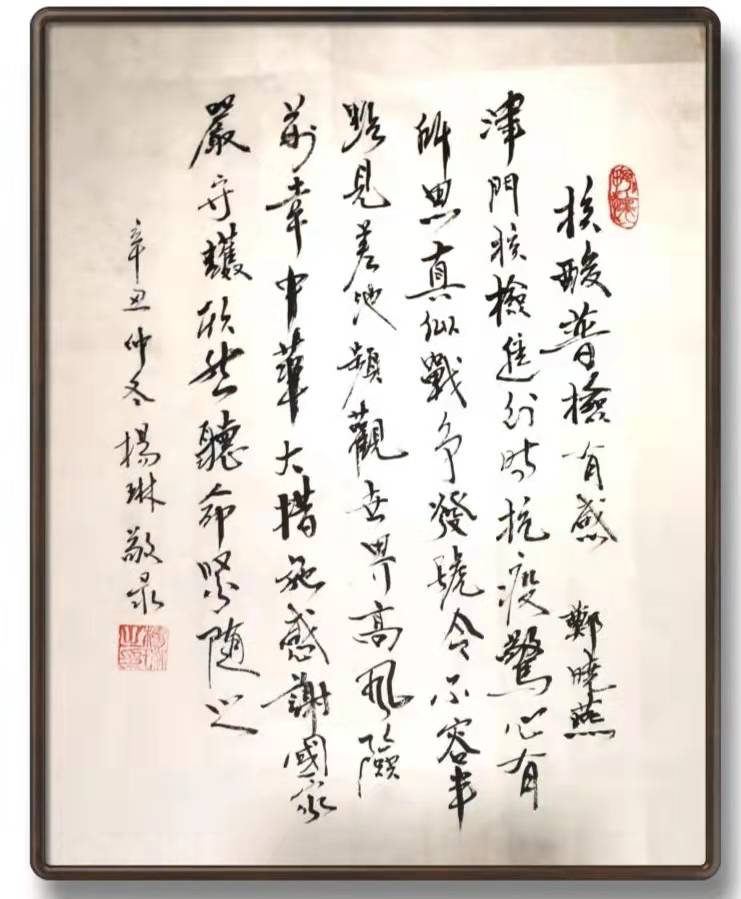 核酸普檢有感 鄭曉燕
津門核檢進行時抗疫驚心有
所思真似戰争發號令不容半
點見差池頻觀世界高風險
萬幸中華大措施感謝國家
嚴守護欣然聽命緊隨之
辛丑仲冬楊琳敬录